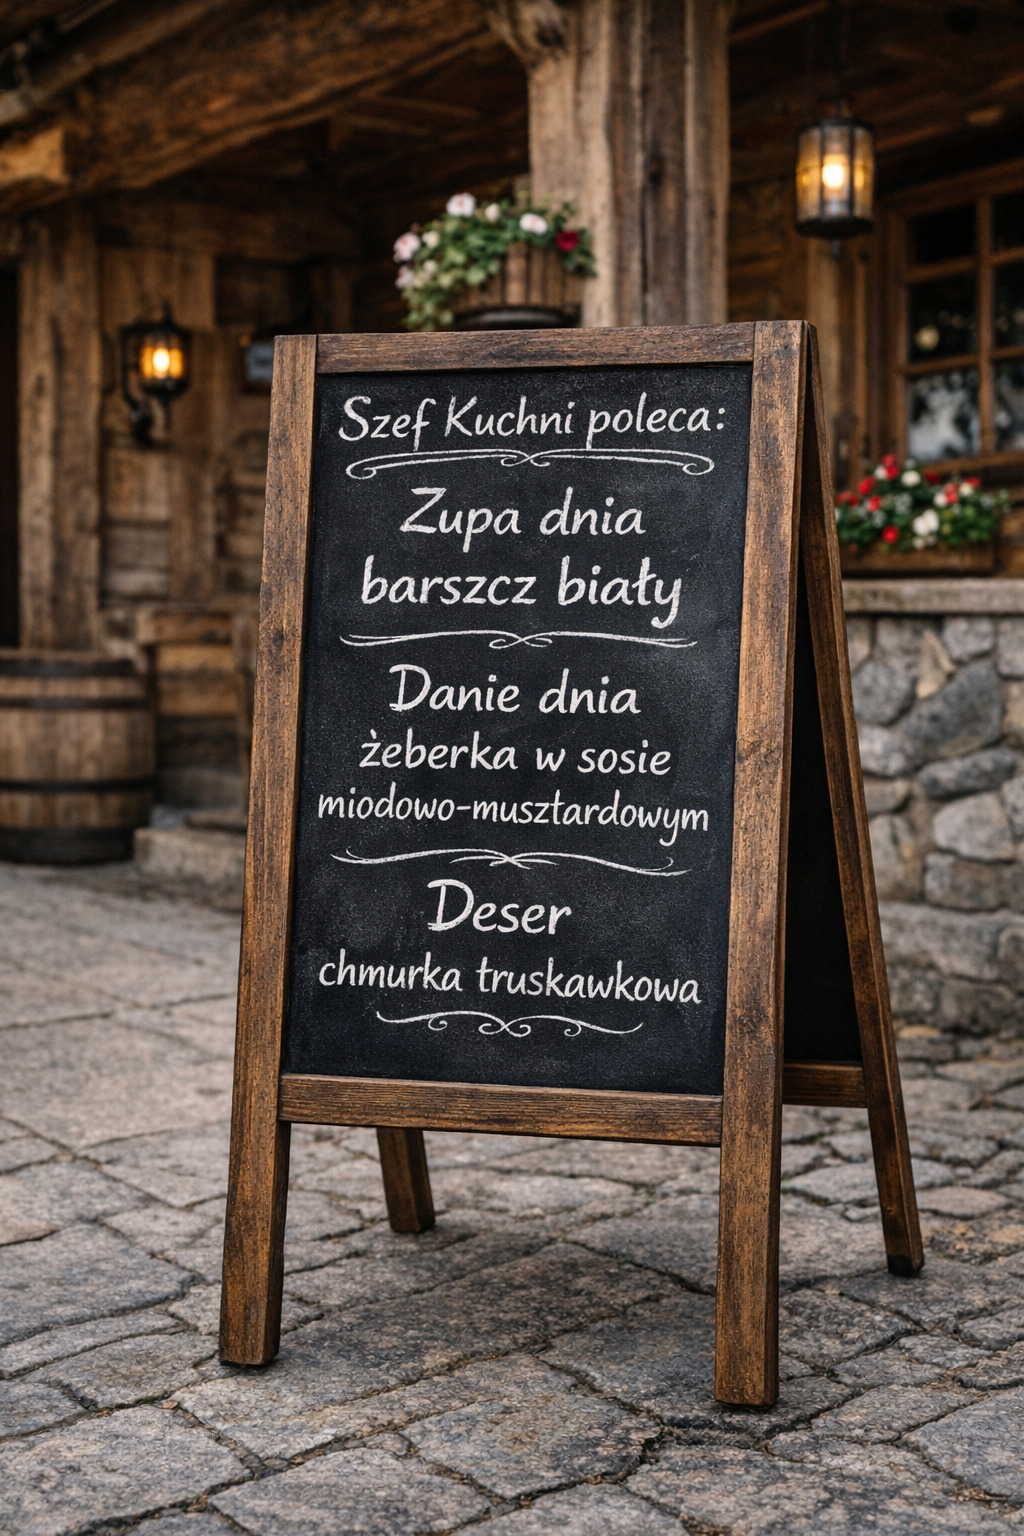 Szef Kuchni poleca:
Zupa dnia
barszcz biały
Danie dnia
żeberka w sosie
miodowo-musztardowym
Deser
chmurka truskawkowa